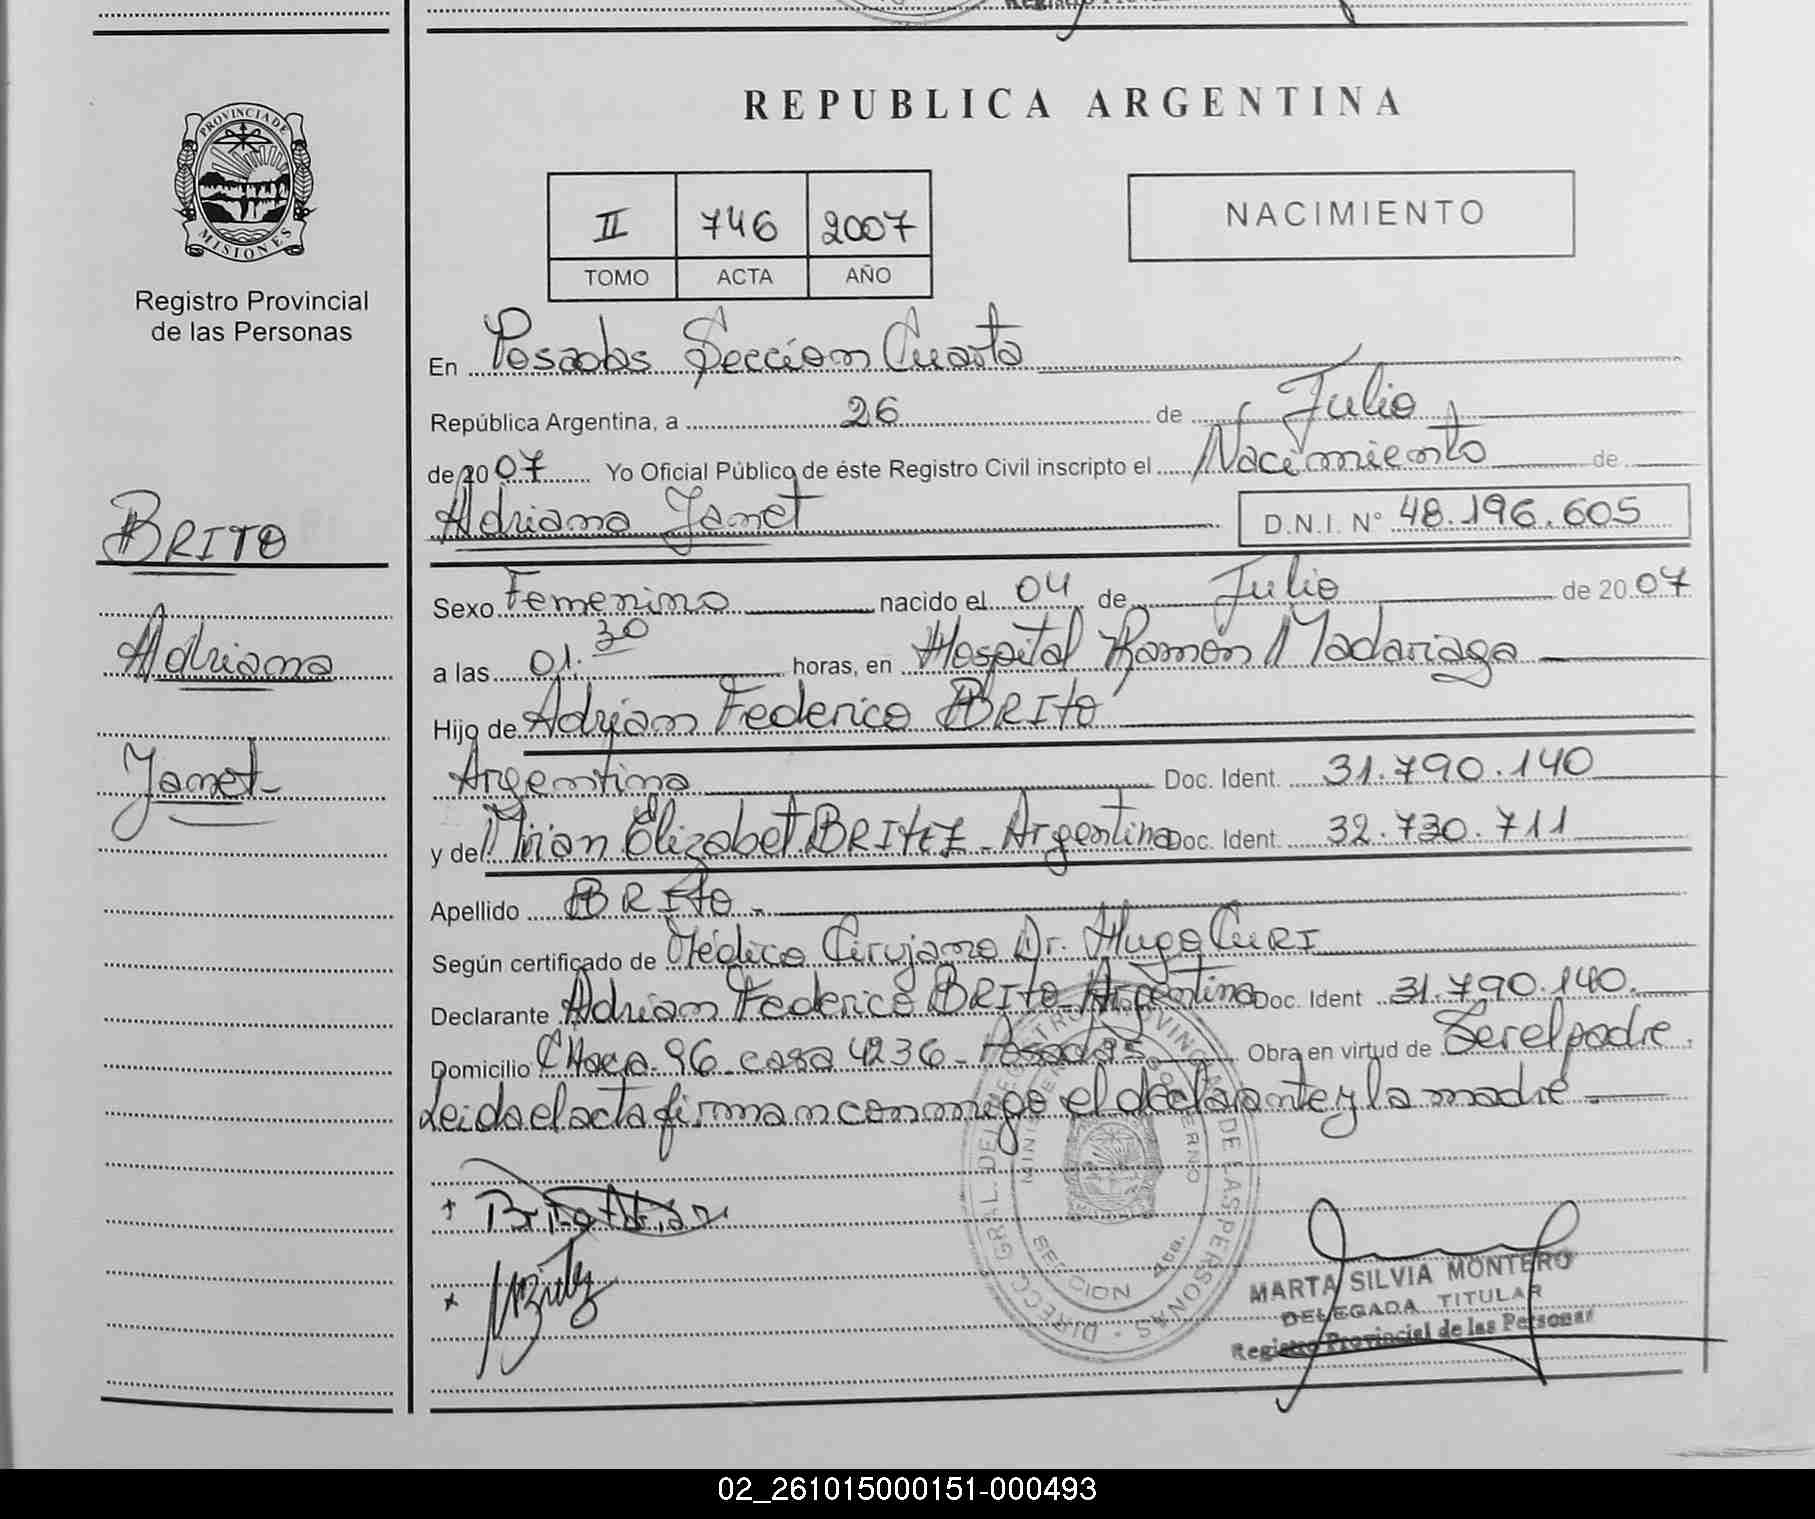 REPUBLICA ARGENTINA
PROVINCIA DE
MISIONES
Registro Provincial
de las Personas
II 746 2007
TOMO ACTA AÑO
NACIMIENTO
En Posadas Sección Cuarta
República Argentina, a 26 de Julio
de 2007 Yo Oficial Público de éste Registro Civil inscripto el Nacimiento de
Adriana Janet D.N.I. Nº 48.196.605
BRITO
Adriana
Janet
Sexo Femenino nacido el 04 de Julio de 2007
a las 01.30 horas, en Hospital Ramon Madariaga
Hijo de Adrian Federico BRITO
Argentina Doc. Ident. 31.790.140
y de Mirian Elizabet BRITEZ - Argentina Doc. Ident. 32.730.711
Apellido BRITO.-
Según certificado de Médico Cirujano Dr. Hugo CURI
Declarante Adrian Federico BRITO - Argentina Doc. Ident 31.790.140.
Domicilio Chacra 96 - casa 4236 - Posadas Obra en virtud de Ser el padre.
Leida el acta firman conmigo el declarante y la madre.-
DIRECC. GRAL. DEL REGISTRO PROVINCIAL DE LAS PERSONAS
SECCION 4ta.
+ Brito Adrian
MARTA SILVIA MONTERO
DELEGADA TITULAR
Registro Provincial de las Personas
02_261015000151-000493